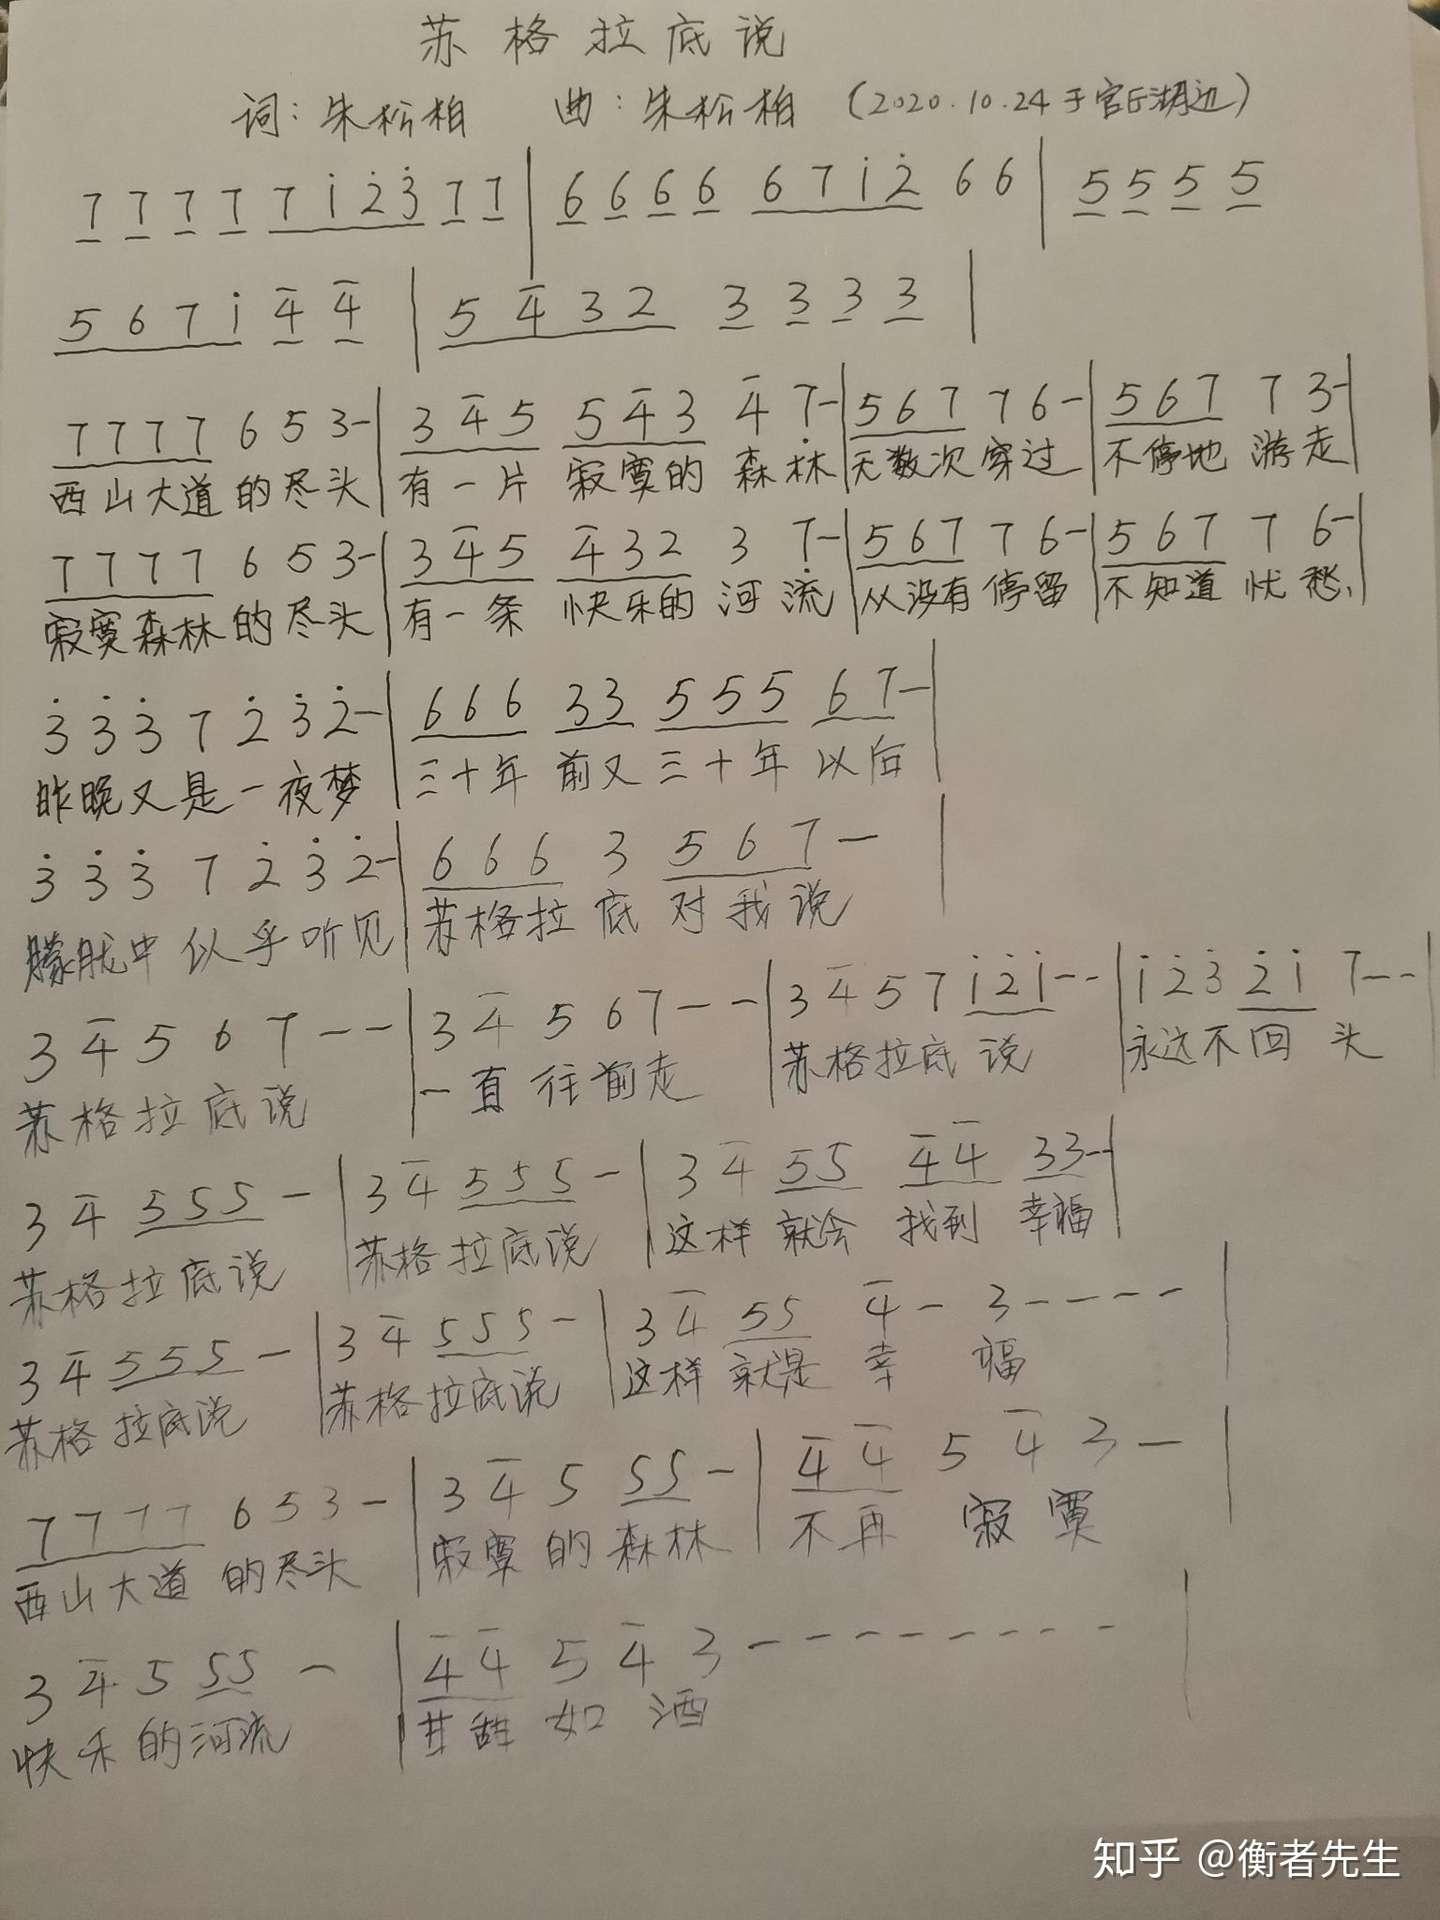 苏格拉底说
词：朱松柏 曲：朱松柏 （2020.10.24于官丘湖边）
7 7 7 7 7 1̇ 2̇ 3̇ 7 7 | 6 6 6 6 6 7 1̇ 2̇ 6 6 | 5 5 5 5
5 6 7 1̇ 4̄ 4̄ | 5 4̄ 3 2 3 3 3 3 |
7 7 7 7 6 5 3- | 3 4̄ 5 5 4̄ 3 4̄ 7̣- | 5 6 7 7 6- | 5 6 7 7 3- |
西山大道的尽头 | 有一片 寂寞的 森林 | 无数次 穿过 | 不停地 游走 |
7 7 7 7 6 5 3- | 3 4̄ 5 4̄ 3 2 3 7̣- | 5 6 7 7 6- | 5 6 7 7 6- |
寂寞森林的尽头 | 有一条 快乐的 河流 | 从没有 停留 | 不知道 忧愁、|
3̇ 3̇ 3̇ 7 2̇ 3̇ 2̇- | 6 6 6 3 3 5 5 5 6 7- |
昨晚又是一夜梦 | 三十年 前又 三十年 以后
3̇ 3̇ 3̇ 7 2̇ 3̇ 2̇- | 6 6 6 3 5 6 7 - |
朦胧中似乎听见 | 苏格拉底 对我说
3 4̄ 5 6 7 - - | 3 4̄ 5 6 7 - - | 3 4̄ 5 7 1̇ 2̇ 1̇ - - | 1̇ 2̇ 3̇ 2̇ 1̇ 7 - - |
苏格拉底说 | 一直往前走 | 苏格拉底 说 | 永远不回 头
3 4̄ 5 5 5 - | 3 4̄ 5 5 5 - | 3 4̄ 5 5 4̄ 4̄ 3 3 - - |
苏格拉底说 | 苏格拉底说 | 这样 就会 找到 幸福 |
3 4̄ 5 5 5 - | 3 4̄ 5 5 5 - | 3 4̄ 5 5 4̄ - 3 - - - - |
苏格拉底说 | 苏格拉底说 | 这样 就是 幸 福
7 7 7 7 6 5 3 - | 3 4̄ 5 5 5 - | 4̄ 4̄ 5 4̄ 3 - |
西山大道 的尽头 | 寂寞的森林 | 不再 寂寞
3 4̄ 5 5 5 - | 4̄ 4̄ 5 4̄ 3 - - - - - - - - |
快乐的河流 | 甘甜如 酒
知乎 @衡者先生